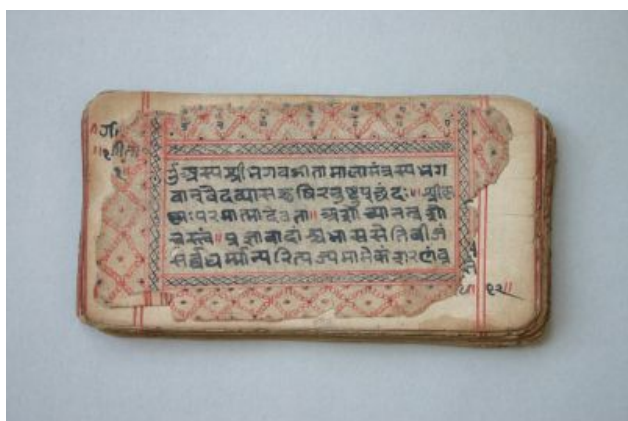 ॐअस्यश्रीभगवद्गीतामालामंत्रस्यभग
वान्वेदव्यासऋषिरनुष्टुप्छंदः॥श्रीकृ
ष्णःपरमात्मादेवता॥अशोच्यानन्वशो
चस्त्वं॥प्रज्ञावादांश्चभाससेतिबीजं
सर्वधर्मान्परित्यज्यमामेकंशरणंव्र